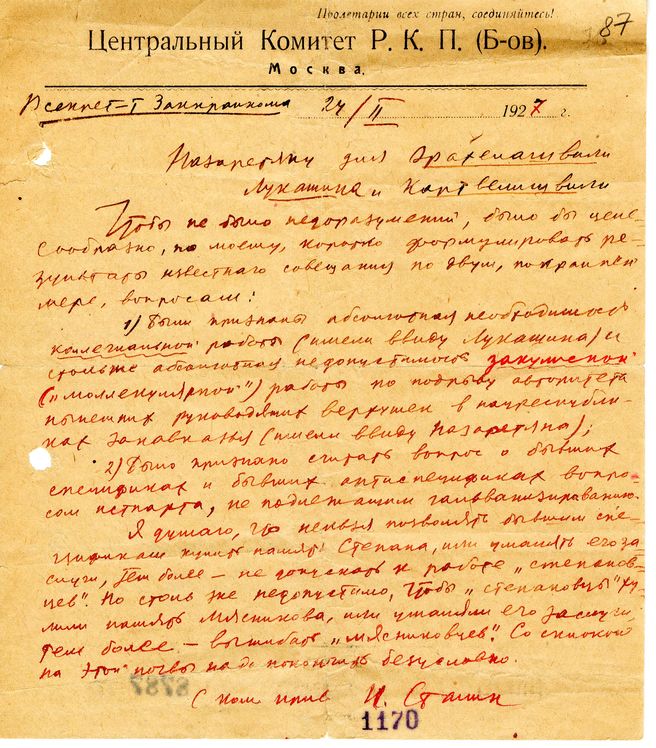 Пролетарии всех стран, соединяйтесь!
87
Центральный Комитет Р. К. П. (Б-ов).
Москва.
Заккрайкома 24/II 1927 г.
Назаретяну для Орахелашвили
Лукашина и Картвелишвили
Чтобы не было недоразумений, было бы целе-
сообразно, по моему, коротко формулировать ре-
зультаты известного совещания по двум, по крайней
мере, вопросам:
1) Были признаны абсолютная необходимость
коллегиальной работы (имели ввиду Лукашина) и
столь же абсолютная недопустимость закулисной
("моллекулярной") работы по подрыву авторитета
нынешних руководящих верхушек в нацреспубли-
ках Закавказья (имели ввиду Назаретяна);
2) Было признано считать вопрос о бывших
спецификах и бывших антиспецификах вопро-
сом истпарта, не подлежащим гальванизированию.
Я думаю, что нельзя позволять бывшим спе-
цификам хулить память Степана, или умалять его за-
слуги, тем более – не допускать к работе "степанов-
цев". Но столь же недопустимо, чтобы "степановцы" ху-
лили память Мясникова, или умаляли его заслуги,
тем более – вышибать "мясниковцев". Со склокой
на этой почве надо покончить безусловно.
С ком. прив. И. Сталин
1170